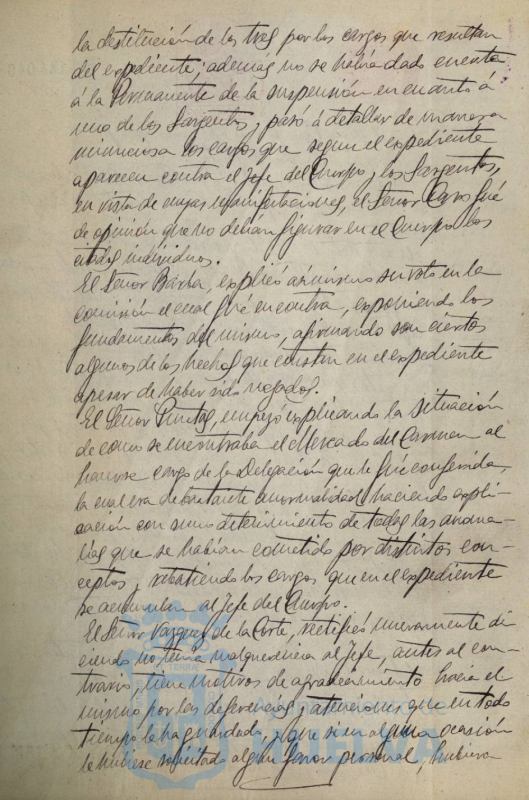 la destitución de los tres por los cargos que resultan
del expediente; además no se había dado cuenta
á la Permanente de la suspensión en cuanto á
uno de los Sargentos, pasó á detallar de manera
minuciosa los cargos que segun el expediente
aparecen contra el Jefe del Cuerpo y los Sargentos,
en vista de cuyas manifestaciones, el Señor Caro fué
de opinión que no debían figurar en el Cuerpo los
citados individuos.
El Señor Barba, explicó asimismo su voto en la
comisión el cual fué en contra, exponiendo los
fundamentos del mismo, afirmando son ciertos
algunos de los hechos que constan en el expediente
apesar de haber sido negados.
El Señor empezó explicando la situación
de como se encontraba el Mercado del Carmen al
hacerse cargo de la Delegación que le fué conferida,
la cual era de bastante anormalidad haciendo expli-
cación con sumo detenimiento de todas las anoma-
lías que se habían cometido por distintos con-
ceptos, rebatiendo los cargos que en el expediente
se acumulan al Jefe del Cuerpo.
El Señor Vazquez de la Corte, rectificó nuevamente di-
ciendo no tenía malquerencia al Jefe, antes al con-
trario, tiene motivos de agradecimiento hacia el
mismo por las deferencias y atenciones que en todo
tiempo le ha guardado, y que si en alguna ocasión
le hubiese solicitado algun favor personal, hubiera